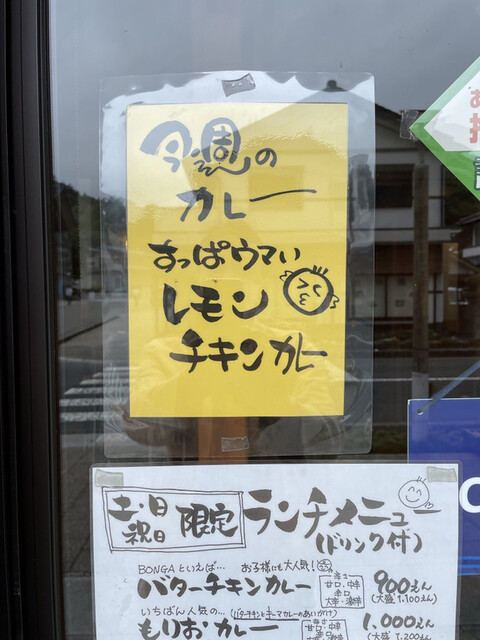 今週の
カレー
すっぱウマい
レモン
チキンカレー
土・日
祝日
限定
ランチメニュー
(ドリンク付)
BONGAといえば… お子様にも大人気!
バターチキンカレー
辛さ
甘口・中辛
辛口
大辛・激辛
900えん
(大盛 1,100えん)
いちばん人気の… (バターチキンとキーマカレーのあいがけ)
もりおカレー
辛さ
甘口・中辛
1,000えん
(大盛 1,200えん)